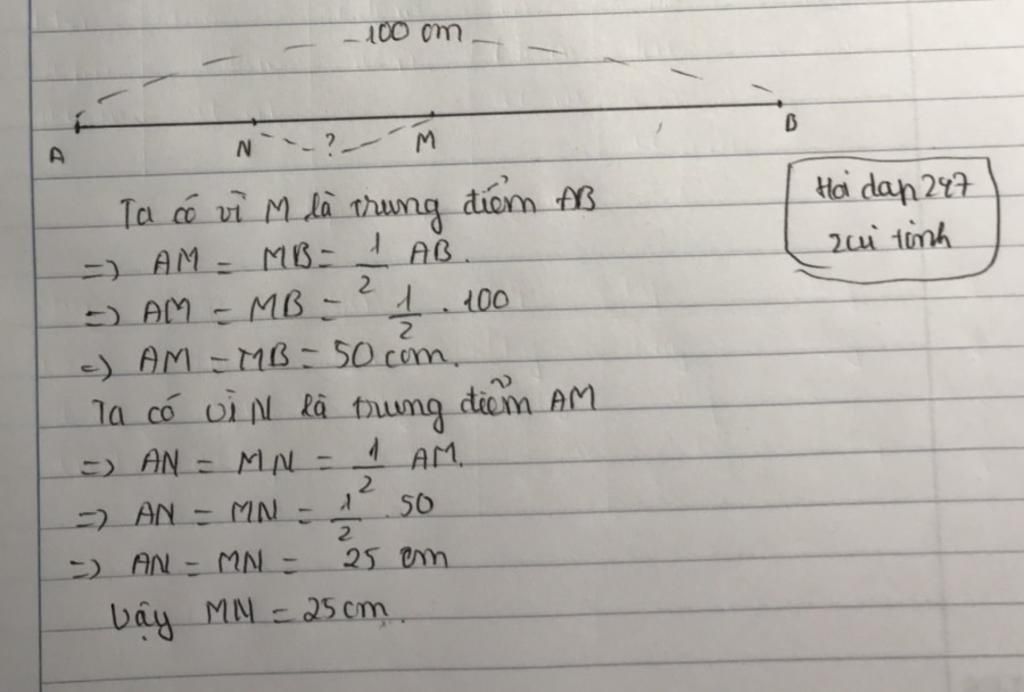 100 cm
A N ? M B
Hoi dap 247
2cui tinh
Ta có vì M là trung điểm AB
=) AM = MB = 1/2 AB.
=) AM = MB = 1/2 . 100
=) AM = MB = 50 cm.
Ta có vì N là trung điểm AM
=) AN = MN = 1/2 AM.
=) AN = MN = 1/2 . 50
=) AN = MN = 25 cm
Vậy MN = 25 cm.